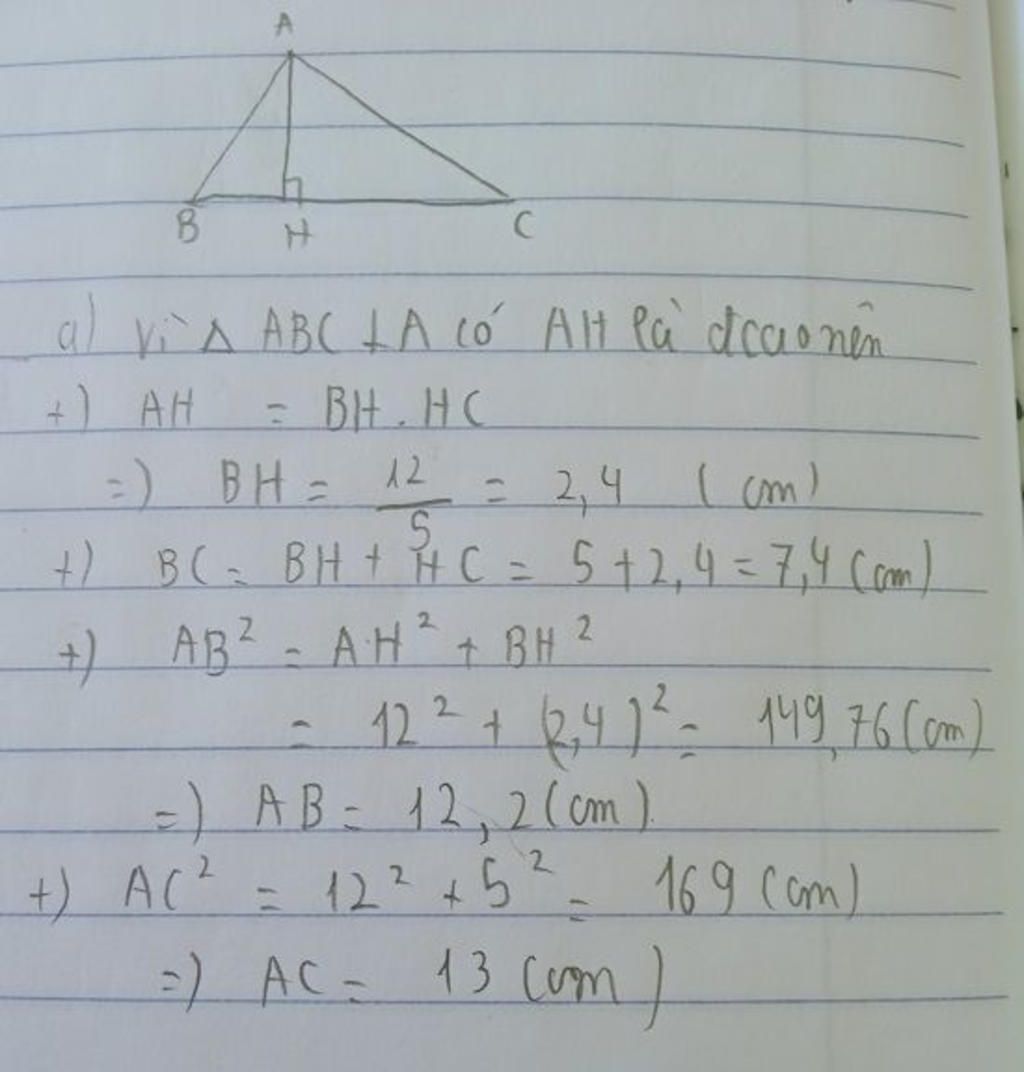 A
B H C
a) Vì Δ ABC ⊥ A có AH là đcao nên
+) AH = BH . HC
=) BH = 12/5 = 2,4 (cm)
+) BC = BH + HC = 5 + 2,4 = 7,4 (cm)
+) AB² = AH² + BH²
= 12² + (2,4)² = 149,76 (cm)
=) AB = 12,2 (cm)
+) AC² = 12² + 5² = 169 (cm)
=) AC = 13 (cm)